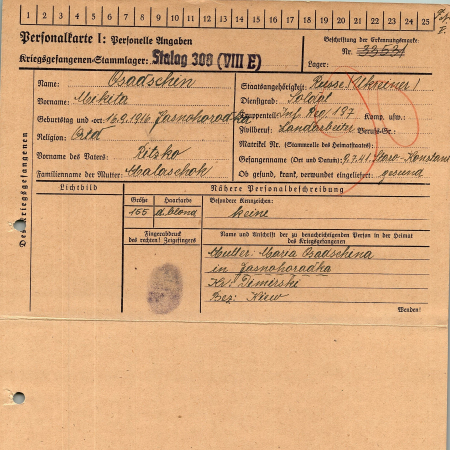 1 2 3 4 5 6 7 8 9 10 11 12 13 14 15 16 17 18 19 20 21 22 23 24 25
Personalkarte I: Personelle Angaben
Kriegsgefangenen-Stammlager: Stalag 308 (VIII E)
Beschriftung der Erkennungsmarke
Nr. 33531
Lager:
Des Kriegsgefangenen
Name: Osadschen
Vorname: Mikita
Geburtstag und -ort: 16.9.1916 Jasnohoradka
Religion: Ortd
Vorname des Vaters: Ritzko
Familienname der Mutter:
Staatsangehörigkeit: Russe (Ukrainer)
Dienstgrad: Soldat
Truppenteil: Inf. Reg. 197 Komp. usw.:
Zivilberuf: Landarbeiter Berufs-Gr.:
Matrikel Nr. (Stammrolle des Heimatstaates):
Gefangennahme (Ort und Datum): 9.7.41 Staro-Konstant
Ob gesund, krank, verwundet eingeliefert: gesund
Lichtbild
Nähere Personalbeschreibung
Größe Haarfarbe Besondere Kennzeichen:
155 d. blond keine
Fingerabdruck
des rechten! Zeigefingers
Name und Anschrift der zu benachrichtigenden Person in der Heimat
des Kriegsgefangenen
Mutter: Maria Osadschena
in Jasnohoradka
Kr: Dimerski
Bez: Kiew
Wenden!